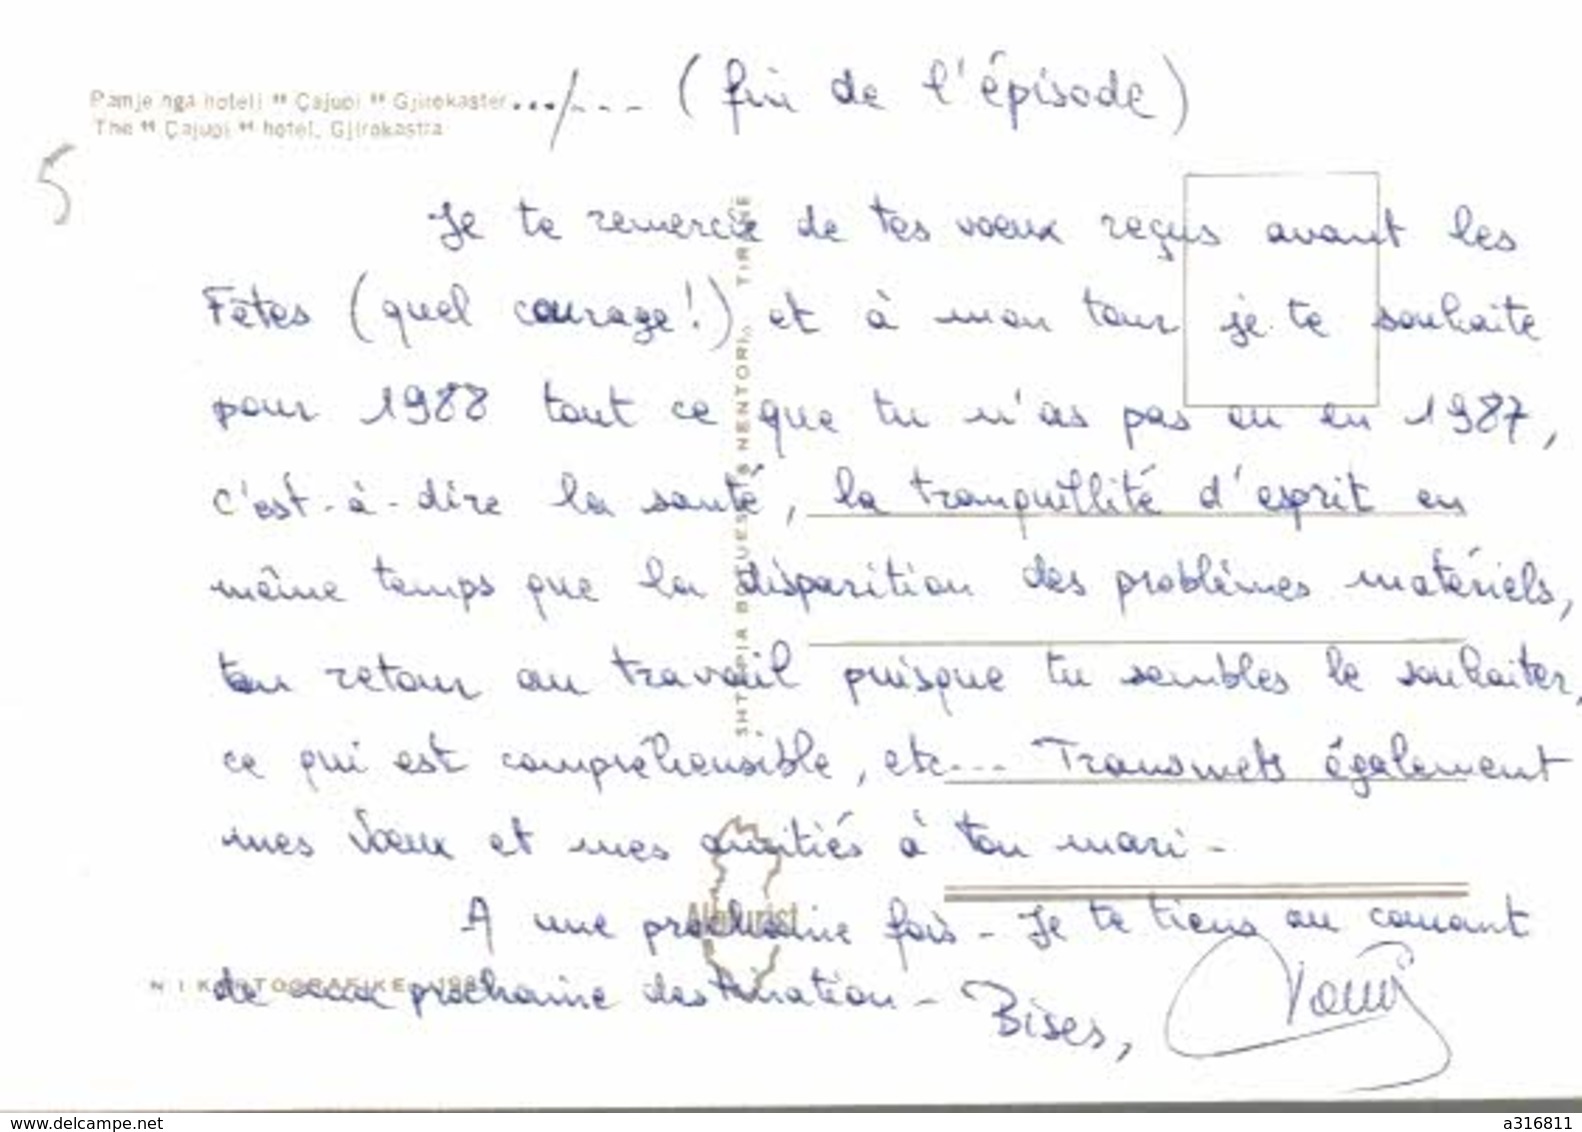 Pamje nga hoteli " Çajupi " Gjirokaster
The " Çajupi " hotel, Gjirokastra
.../... (fin de l'épisode)
5
Je te remercie de tes voeux reçus avant les
Fêtes (quel courage!) et à mon tour je te souhaite
pour 1988 tout ce que tu n'as pas eu en 1987,
c'est-à-dire la santé, la tranquillité d'esprit en
même temps que la disparition des problèmes matériels,
ton retour au travail puisque tu sembles le souhaiter,
ce qui est compréhensible, etc... Transmets également
mes voeux et mes amitiés à ton mari -
A une prochaine fois - Je te tiens au courant
de ma prochaine destination - Bises,
SHTEPIA BOTUESE 8 NENTORI,, TIRANE
Albturist
N I KARTOGRAFIKE
www.delcampe.net
a316811